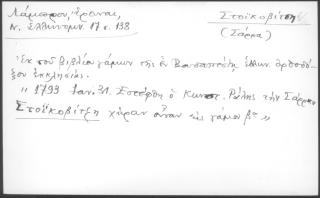 Λάμπρου, Έρευναι,
Ν. Ελληνομν. 17 σ. 138
Στοϊκοβίτση
(Σάρρα)
Ἐκ τοῦ βιβλίου γάμων τῆς ἐν Βουδαπέστῃ ἑλλην. ὀρθοδό-
ξου ἐκκλησίας.
" 1799 Ἰαν. 31. Ἐστέφθη ὁ Κωνστ. Ρώσης τὴν Σάρραν
Στοϊκοβίτζη χήραν οὖσαν εἰς γάμον βον "